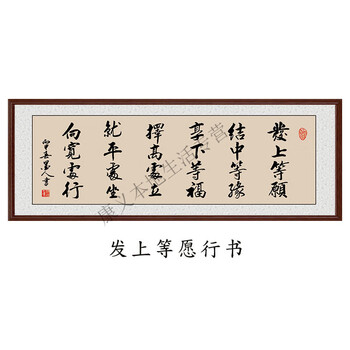 發上等願
結中等緣
享下等福
擇高處立
就平處坐
向寬處行
发上等愿行书